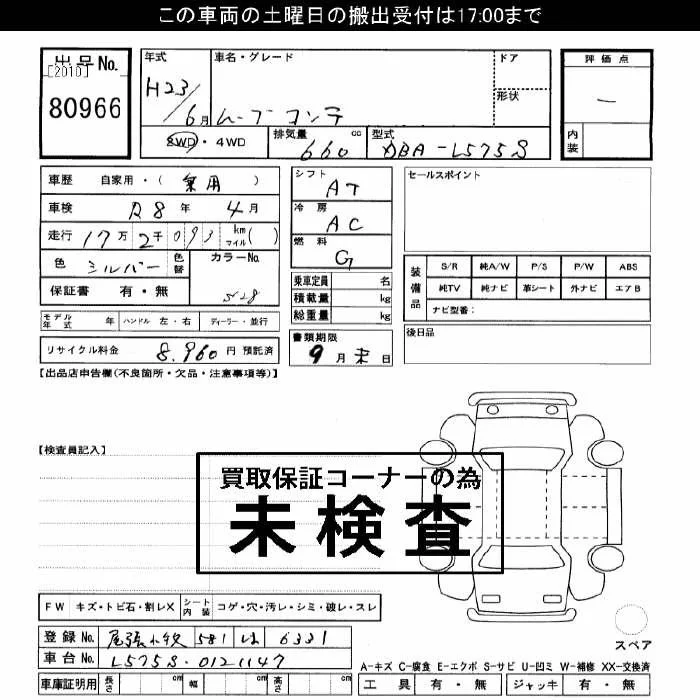 この車両の土曜日の搬出受付は17:00まで
出品No.
[2010]
80966
年式
H23/6月
車名・グレード
ムーブコンテ
ドア
形状
評価点
—
内装
2WD・4WD
排気量 cc
660
型式
DBA-L575S
車歴 自家用・(乗用)
車検 R8年4月
走行 17万2千093 km マイル( )
色 シルバー
色替
カラーNo.
S28
保証書 有・無
モデル年式 年
ハンドル 左・右
ディーラー・並行
リサイクル料金 8,960円 預託済
シフト
AT
冷房
AC
燃料
G
乗車定員 名
積載量 kg
総重量 kg
書類期限
9月末日
セールスポイント
装備品
S/R 純A/W P/S P/W ABS
純TV 純ナビ 革シート 外ナビ エアB
ナビ型番:
後日品
【出品店申告欄(不良箇所・欠品・注意事項等)】
【検査員記入】
買取保証コーナーの為
未検査
FW キズ・トビ石・割レX
シート内装 コゲ・穴・汚レ・シミ・破レ・スレ
登録No. 尾張小牧 581 は 6331
車台No. L575S-0121147
車庫証明用 長さ cm 幅 cm 高さ cm
スペア
A-キズ C-腐食 E-エクボ S-サビ U-凹ミ W-補修 XX-交換済
工具 有・無 ジャッキ 有・無